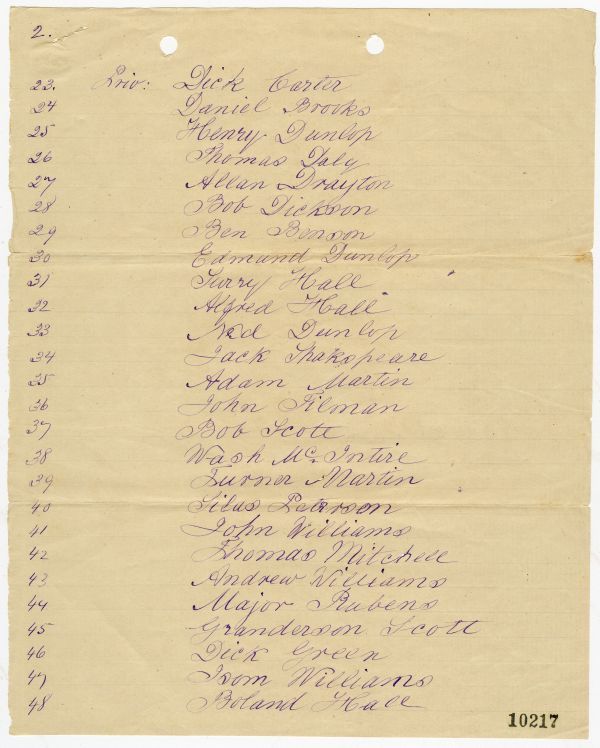 2.
23. Priv: Dick Carter
24 Daniel Brooks
25 Henry Dunlop
26 Thomas Daly
27 Allan Drayton
28 Bob Dickson
29 Ben Benson
30 Edmund Dunlop
31 Turry Hall
32 Alfred Hall
33 Ned Dunlop
34 Jack Shakspeare
35 Adam Martin
36 John Tilman
37 Bob Scott
38 Wash Mc. Intire
39 Turner Martin
40 Silas Peterson
41 John Williams
42 Thomas Mitchell
43 Andrew Williams
44 Major Rubens
45 Granderson Scott
46 Dick Green
47 Isom Williams
48 Boland Hall
10217